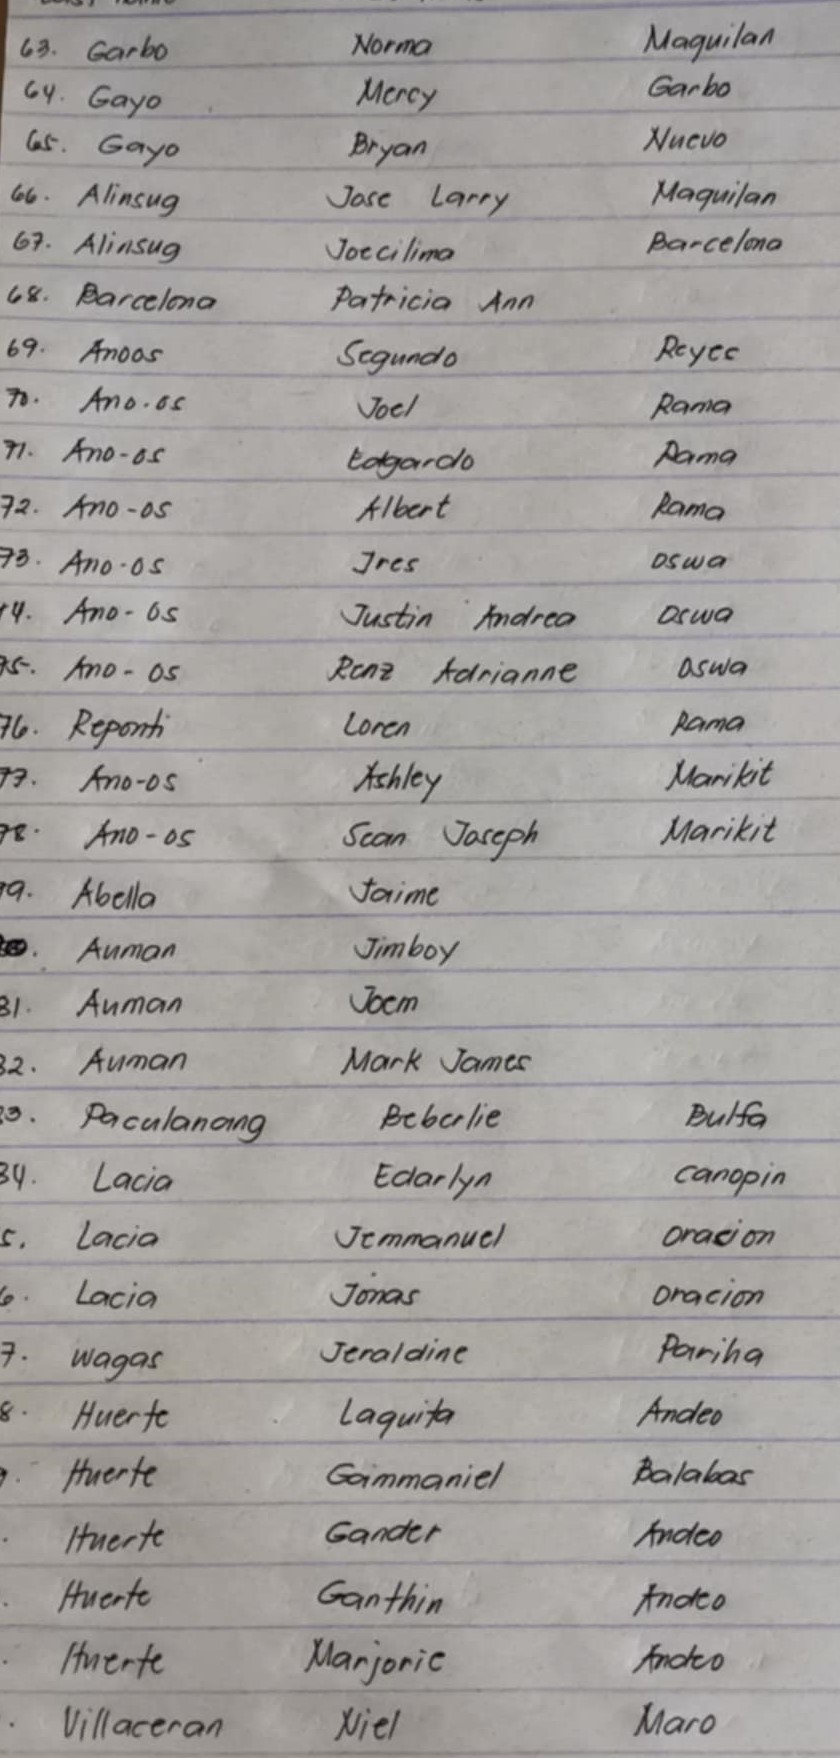 63. Garbo Norma Maquilan
64. Gayo Mercy Garbo
65. Gayo Bryan Nuevo
66. Alinsug Jose Larry Maquilan
67. Alinsug Joecilima Barcelona
68. Barcelona Patricia Ann
69. Anoos Segundo Reyes
70. Ano-os Joel Rama
71. Ano-os Edgardo Rama
72. Ano-os Albert Rama
73. Ano-os Ires Oswa
74. Ano-os Justin Andrea Oswa
75. Ano-os Renz Adrianne Oswa
76. Reponti Loren Rama
77. Ano-os Ashley Marikit
78. Ano-os Sean Joseph Marikit
79. Abella Jaime
Auman Jimboy
81. Auman Joem
82. Auman Mark James
83. Paculanang Beberlie Bulfa
84. Lacia Edarlyn Canopin
5. Lacia Jemmanuel Oracion
6. Lacia Jonas Oracion
7. Wagas Jeraldine Pariha
8. Huerte Laquita Andeo
9. Huerte Gammaniel Balabas
. Huerte Gander Andeo
. Huerte Ganthin Andeo
. Huerte Marjorie Andeo
. Villaceran Niel Maro